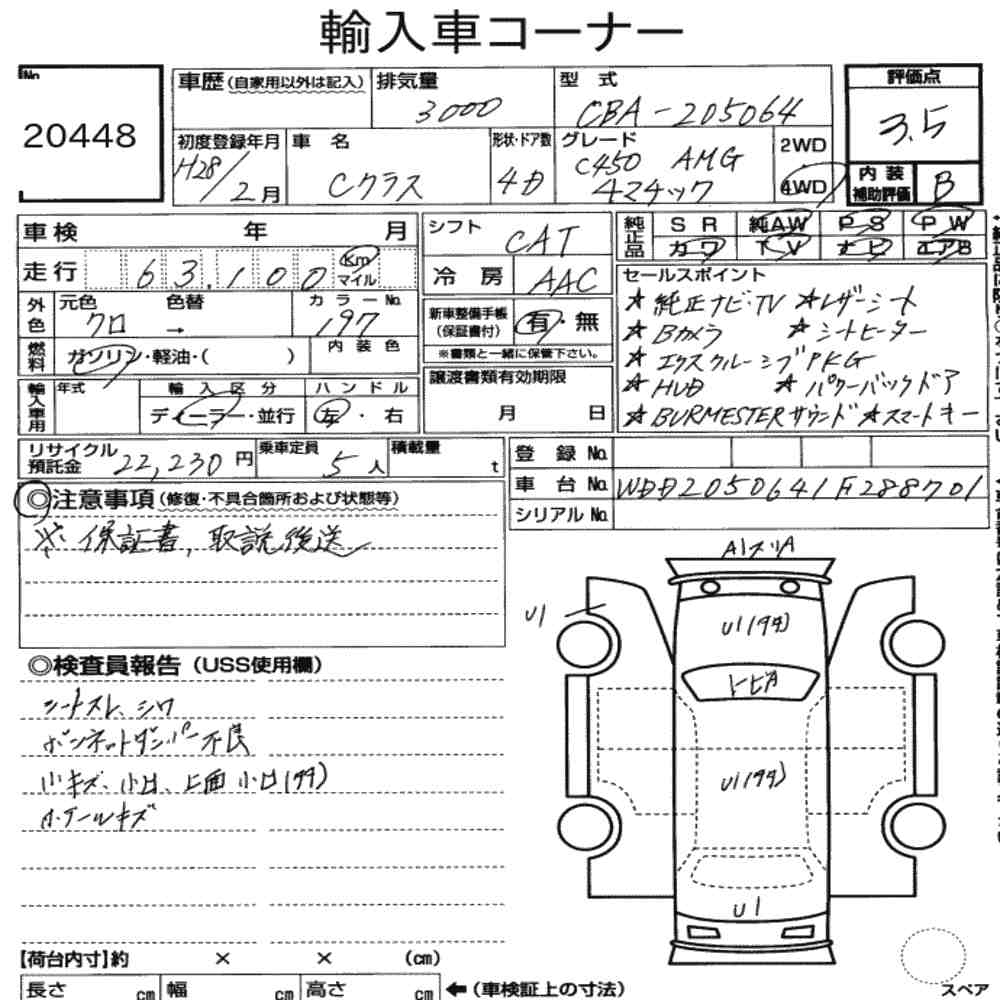 輸入車コーナー
No.
20448
車歴(自家用以外は記入)
排気量
3000
型 式
CBA-205064
評価点
3.5
初度登録年月
H28/2月
車 名
Cクラス
形状・ドア数
4D
グレード
C450 AMG
4マチック
2WD
4WD
内装補助評価
B
車検 年 月
走行 63,100 Km マイル
外色
元色 クロ
色替 →
カラーNo. 197
燃料
ガソリン・軽油・( )
内装色
輸入車用
年式
輸入区分
ディーラー・並行
ハンドル
左・右
シフト
CAT
冷房
AAC
新車整備手帳(保証書付)
有・無
※書類と一緒に保管下さい。
譲渡書類有効期限
月 日
純正品
SR 純AW PS PW
カワ TV ナビ エアB
セールスポイント
★純正ナビ・TV ★レザーシート
★Bカメラ ★シートヒーター
★エクスクルーシブPKG
★HUD ★パワーバックドア
★BURMESTERサウンド ★スマートキー
リサイクル預託金 22,230円
乗車定員 5人
積載量 t
登録No.
車台No. WDD2050641F288701
シリアルNo.
◎注意事項(修復・不具合箇所および状態等)
※ 保証書、取説後送
◎検査員報告(USS使用欄)
シートスレ、シワ
ボンネットダンパー不良
小キズ、小凹、上面小凹(99)
ホイールキズ
A1スリA
U1
U1(99)
トビA
U1(99)
U1
【荷台内寸】約 × × (cm)
長さ cm 幅 cm 高さ cm ←(車検証上の寸法)
スペア